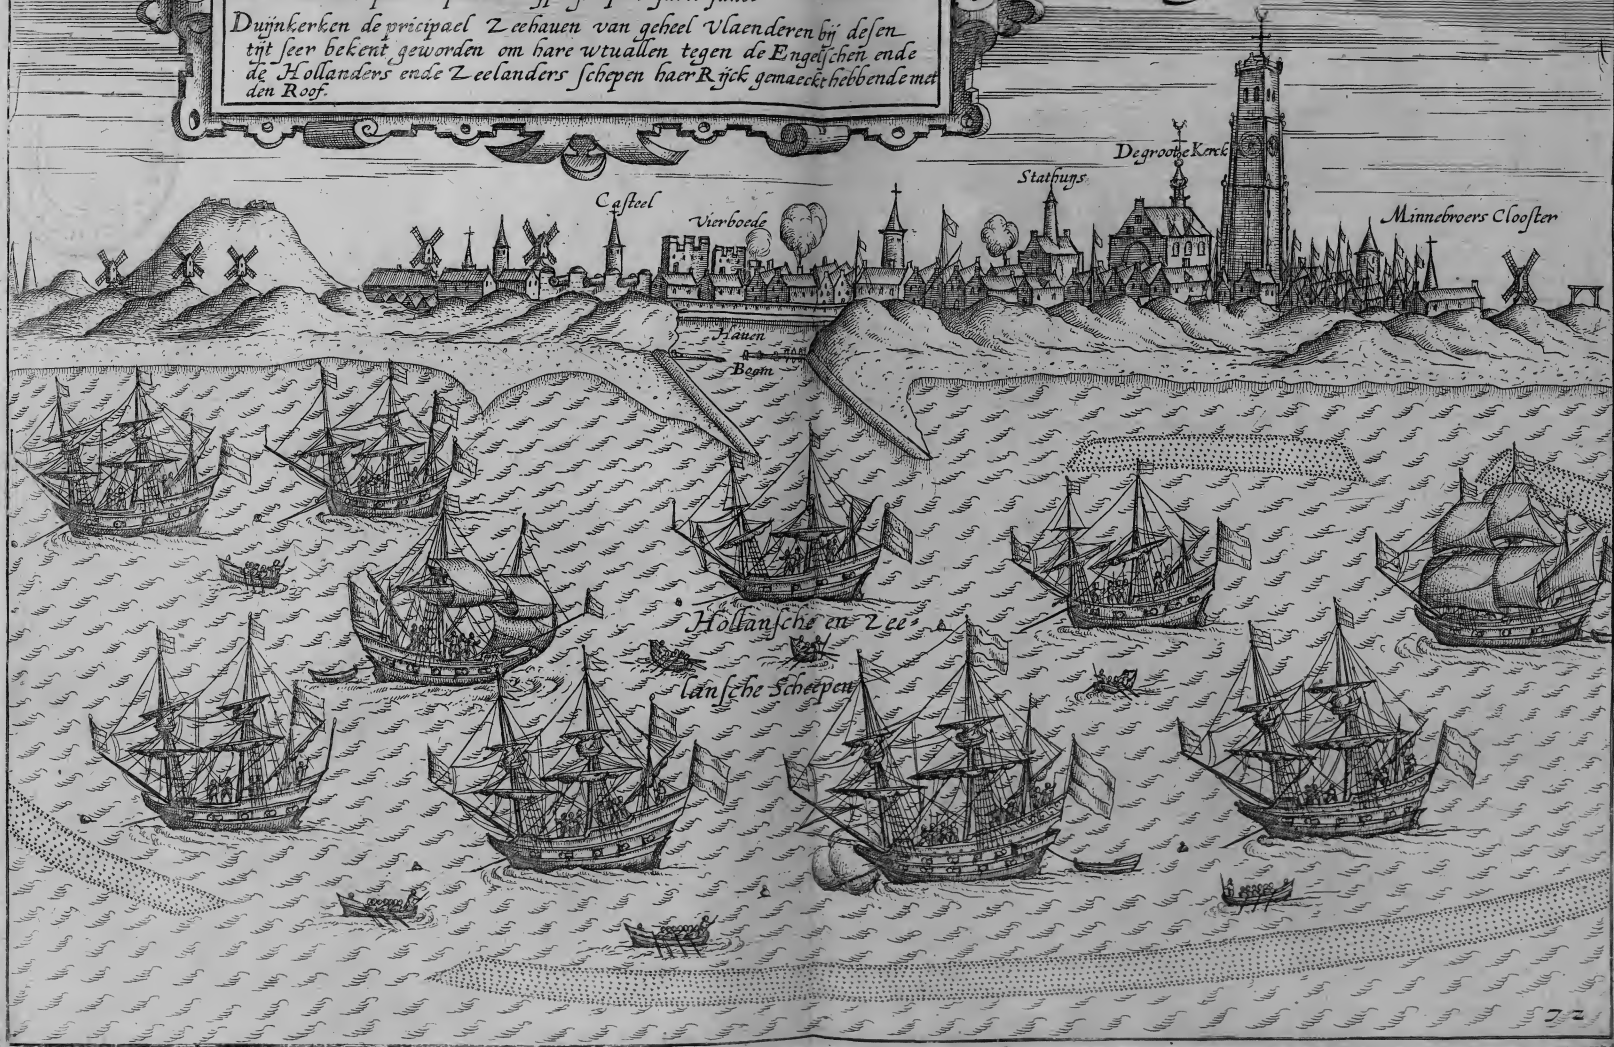 Duijnkerken de pricipael Zeehauen van geheel Vlaenderen bij desen
tijt seer bekent geworden om hare wtuallen tegen de Engelschen ende
de Hollanders ende Zeelanders schepen haer Rijck gemaeckt hebbende met
den Roof.
De groote Kerck
Stathuys
Casteel
Vierboede
Minnebroers Clooster
Hauen
Boom
Hollansche en Zee-
lansche Scheepen
72